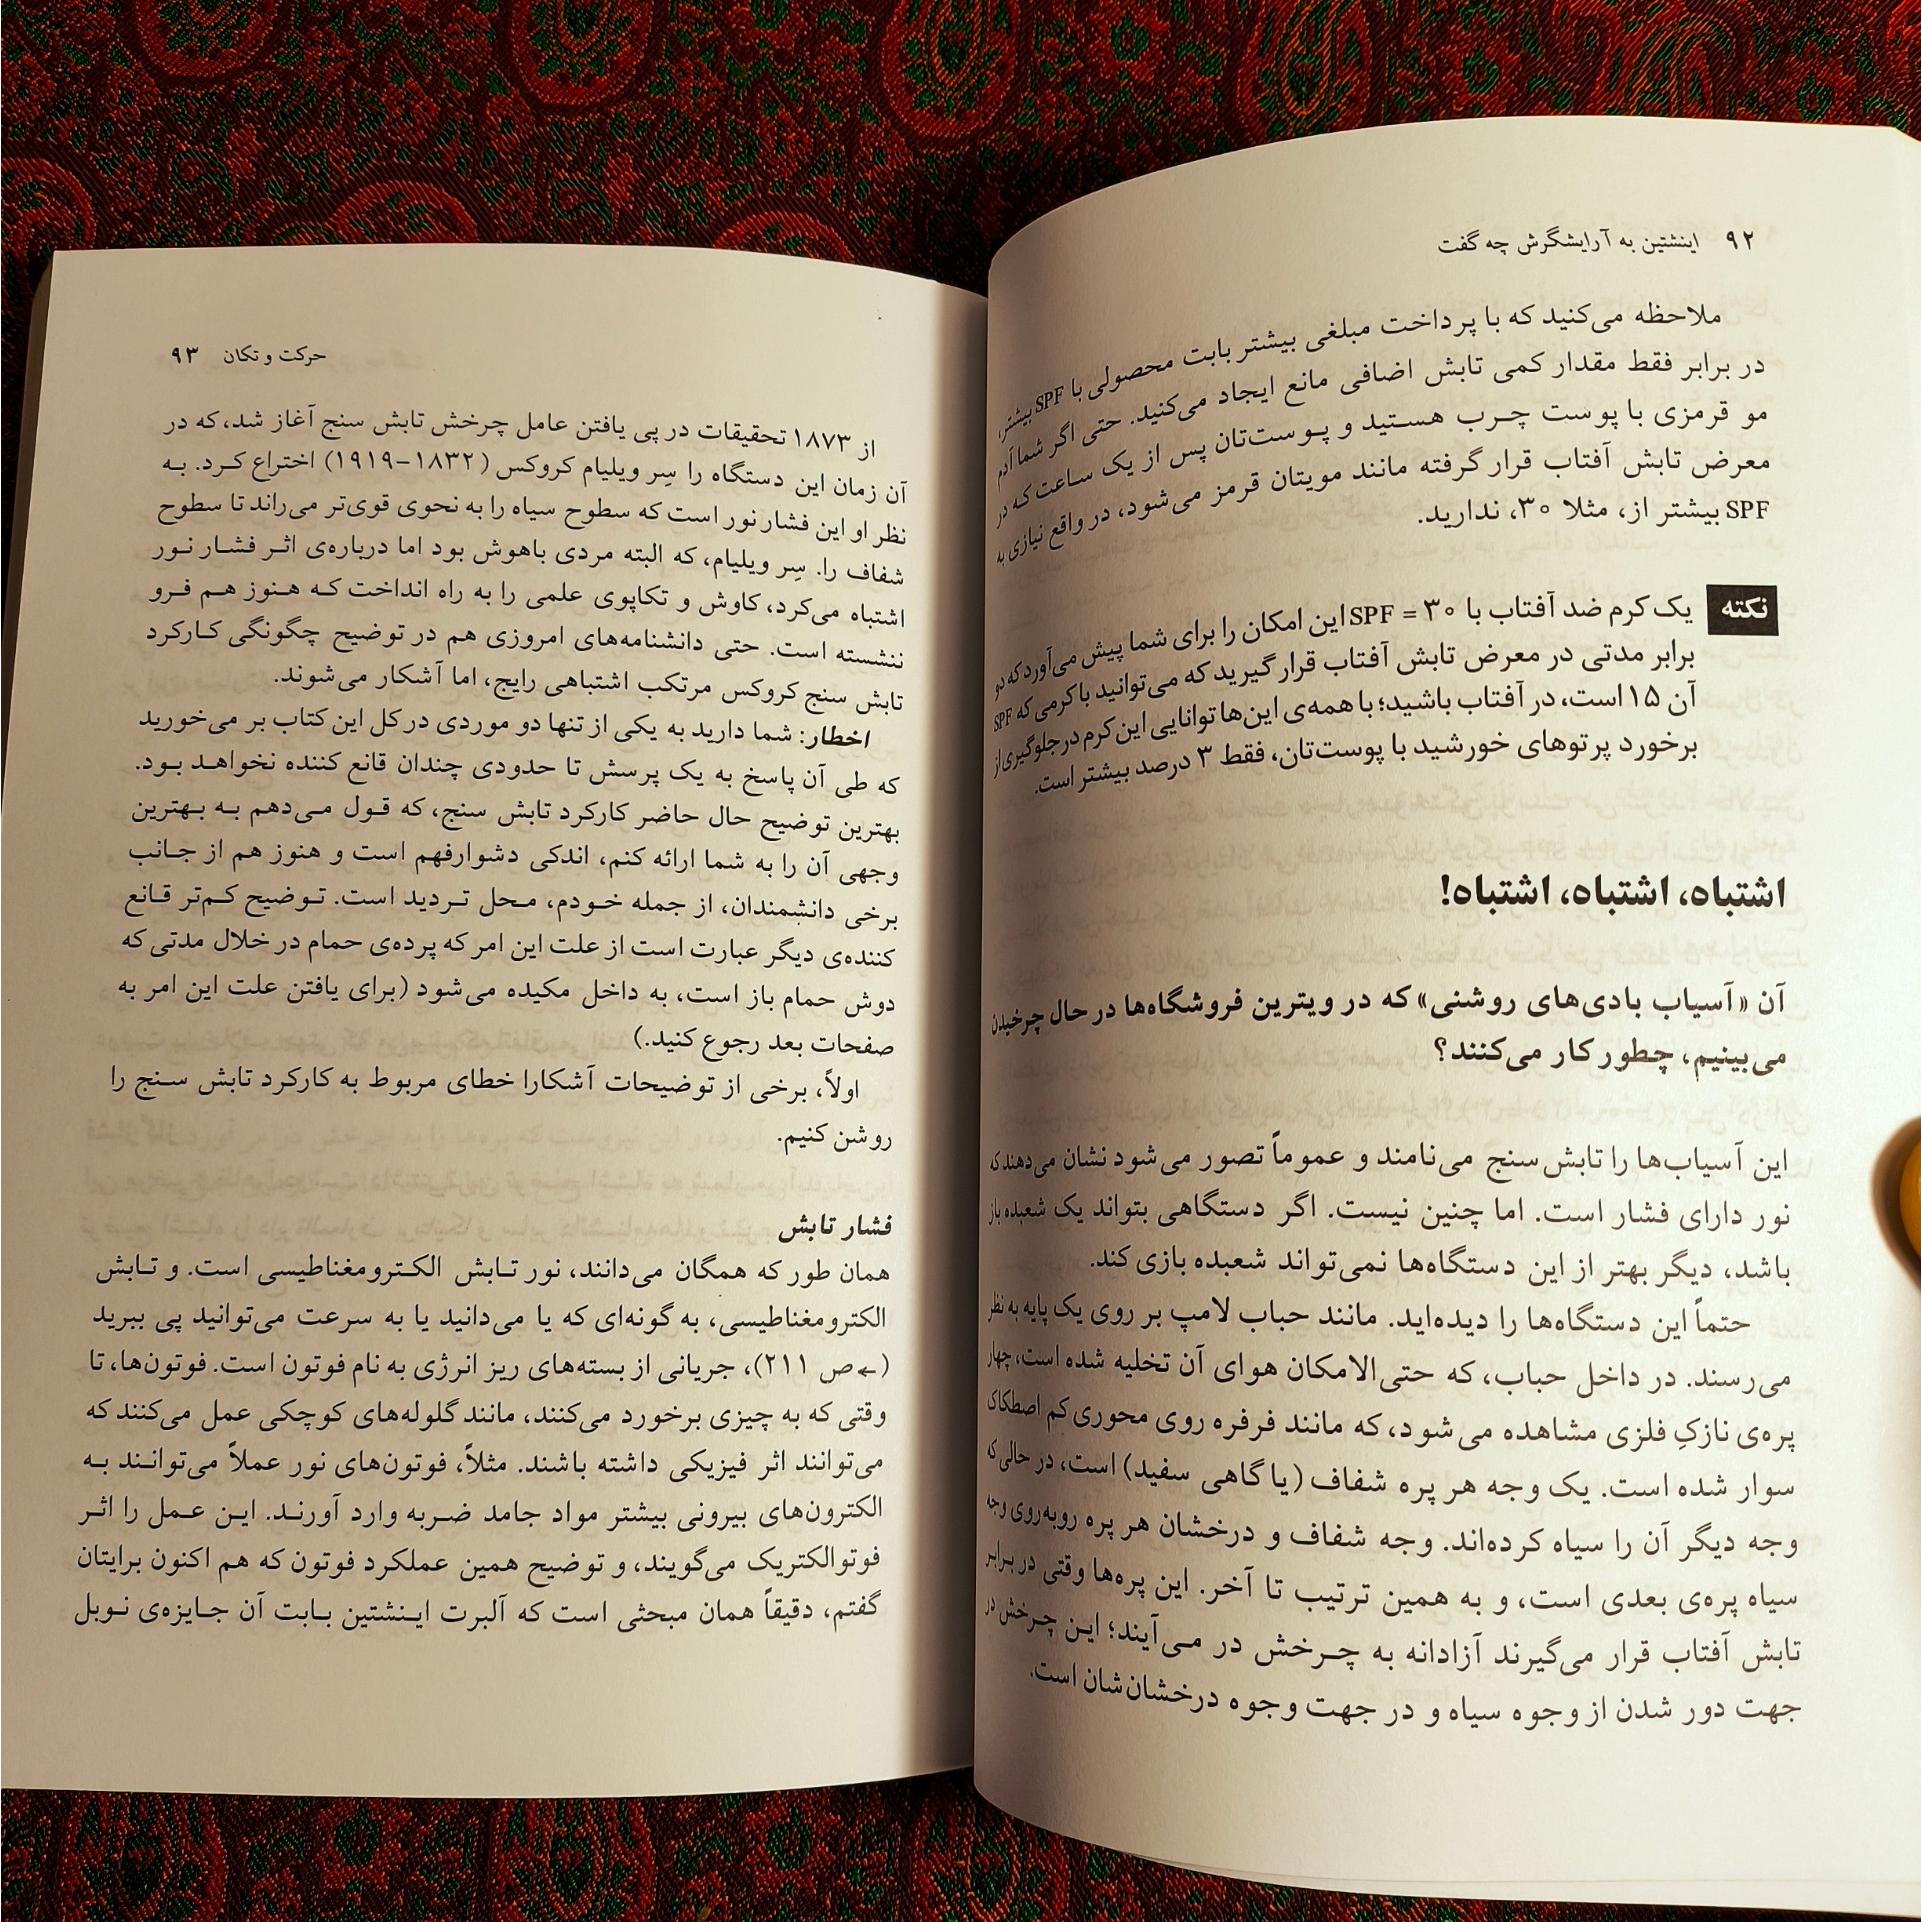 ۹۲ اینشتین به آرایشگرش چه گفت
ملاحظه می‌کنید که با پرداخت مبلغی بیشتر بابت محصولی با SPF بیشتر،
در برابر فقط مقدار کمی تابش اضافی مانع ایجاد می‌کنید. حتی اگر شما آدم
مو قرمزی با پوست چرب هستید و پوست‌تان پس از یک ساعت که در
معرض تابش آفتاب قرار گرفته مانند مویتان قرمز می‌شود، در واقع نیازی به
SPF بیشتر از، مثلا ۳۰، ندارید.
نکته یک کرم ضد آفتاب با ۳۰ = SPF این امکان را برای شما پیش می‌آورد که دو
برابر مدتی در معرض تابش آفتاب قرار گیرید که می‌توانید با کرمی که SPF
آن ۱۵ است، در آفتاب باشید؛ با همه‌ی این‌ها توانایی این کرم در جلوگیری از
برخورد پرتوهای خورشید با پوست‌تان، فقط ۳ درصد بیشتر است.
اشتباه، اشتباه، اشتباه!
آن «آسیاب بادی‌های روشنی» که در ویترین فروشگاه‌ها در حال چرخیدن
می‌بینیم، چطور کار می‌کنند؟
این آسیاب‌ها را تابش سنج می‌نامند و عموماً تصور می‌شود نشان می‌دهند که
نور دارای فشار است. اما چنین نیست. اگر دستگاهی بتواند یک شعبده باز
باشد، دیگر بهتر از این دستگاه‌ها نمی‌تواند شعبده بازی کند.
حتماً این دستگاه‌ها را دیده‌اید. مانند حباب لامپ بر روی یک پایه به نظر
می‌رسند. در داخل حباب، که حتی‌الامکان هوای آن تخلیه شده است، چهار
پره‌ی نازکِ فلزی مشاهده می‌شود، که مانند فرفره روی محوری کم اصطکاک
سوار شده است. یک وجه هر پره شفاف (یا گاهی سفید) است، در حالی که
وجه دیگر آن را سیاه کرده‌اند. وجه شفاف و درخشان هر پره روبه‌روی وجه
سیاه پره‌ی بعدی است، و به همین ترتیب تا آخر. این پره‌ها وقتی در برابر
تابش آفتاب قرار می‌گیرند آزادانه به چرخش در می‌آیند؛ این چرخش در
جهت دور شدن از وجوه سیاه و در جهت وجوه درخشان‌شان است.
حرکت و تکان ۹۳
از ۱۸۷۳ تحقیقات در پی یافتن عامل چرخش تابش سنج آغاز شد، که در
آن زمان این دستگاه را سِر ویلیام کروکس (۱۸۳۲-۱۹۱۹) اختراع کرد. به
نظر او این فشار نور است که سطوح سیاه را به نحوی قوی‌تر می‌راند تا سطوح
شفاف را. سِر ویلیام، که البته مردی باهوش بود اما درباره‌ی اثر فشار نور
اشتباه می‌کرد، کاوش و تکاپوی علمی را به راه انداخت که هنوز هم فرو
ننشسته است. حتی دانشنامه‌های امروزی هم در توضیح چگونگی کارکرد
تابش سنج کروکس مرتکب اشتباهی رایج، اما آشکار می‌شوند.
اخطار: شما دارید به یکی از تنها دو موردی در کل این کتاب بر می‌خورید
که طی آن پاسخ به یک پرسش تا حدودی چندان قانع کننده نخواهد بود.
بهترین توضیح حال حاضر کارکرد تابش سنج، که قول می‌دهم به بهترین
وجهی آن را به شما ارائه کنم، اندکی دشوارفهم است و هنوز هم از جانب
برخی دانشمندان، از جمله خودم، محل تردید است. توضیح کم‌تر قانع
کننده‌ی دیگر عبارت است از علت این امر که پرده‌ی حمام در خلال مدتی که
دوش حمام باز است، به داخل مکیده می‌شود (برای یافتن علت این امر به
صفحات بعد رجوع کنید.)
اولاً، برخی از توضیحات آشکارا خطای مربوط به کارکرد تابش سنج را
روشن کنیم.
فشار تابش
همان طور که همگان می‌دانند، نور تابش الکترومغناطیسی است. و تابش
الکترومغناطیسی، به گونه‌ای که یا می‌دانید یا به سرعت می‌توانید پی ببرید
(← ص ۲۱۱)، جریانی از بسته‌های ریز انرژی به نام فوتون است. فوتون‌ها، تا
وقتی که به چیزی برخورد می‌کنند، مانند گلوله‌های کوچکی عمل می‌کنند که
می‌توانند اثر فیزیکی داشته باشند. مثلاً، فوتون‌های نور عملاً می‌توانند به
الکترون‌های بیرونی بیشتر مواد جامد ضربه وارد آورند. این عمل را اثر
فوتوالکتریک می‌گویند، و توضیح همین عملکرد فوتون که هم اکنون برایتان
گفتم، دقیقاً همان مبحثی است که آلبرت اینشتین بابت آن جایزه‌ی نوبل